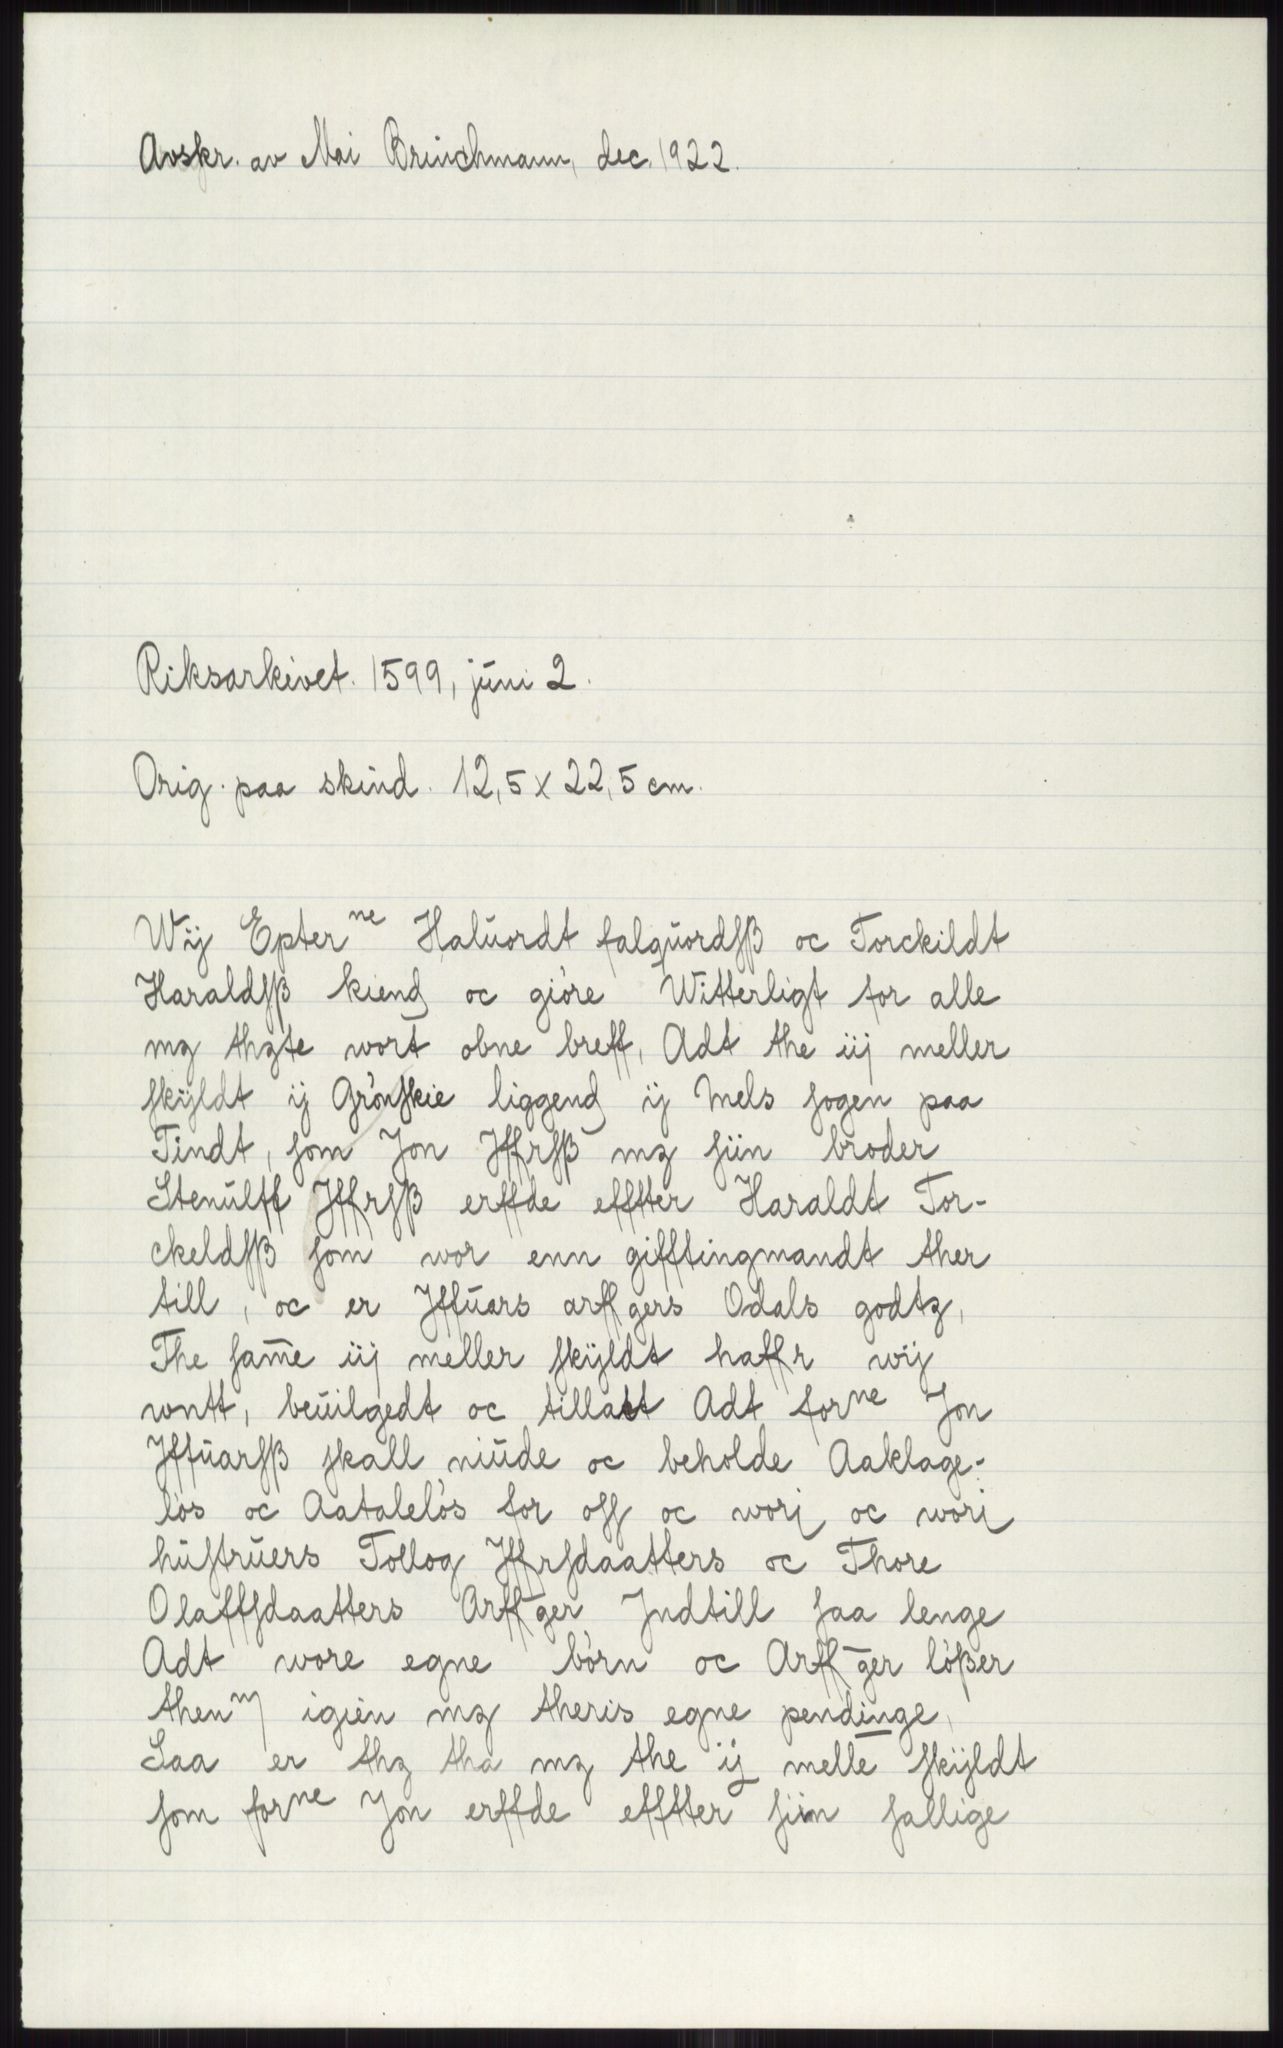 Avskr. av Mai Brinchmann, dec. 1922.
Riksarkivet. 1599, juni 2.
Orig. paa skind. 12,5 x 22,5 cm.
Wij Epterⁿᵉ Haluordt falquordſß oc Torckildt
Haraldſß kiend oc giöre Witterligt for alle
mz thzte wort obne breff, Adt the iij meller
ſkyldt ij Grönſkie liggend ij Mels ſogen paa
Tindt, ſom Jon Jffrſß mz ſiin broder
Stenulff Jffrſß erffde effter Haraldt Tor-
ckeldſß ſom wor enn gifftingmandt ther
till, oc er Jffuars arffgers Odals godtz,
The ſam̄e iij meller ſkyldt haffr wij
wntt, beuilgedt oc tillatt Adt forⁿᵉ Jon
Jffuarſß ſkall niude oc beholde Aaklage-
lös oc Aatalelös for oſſ oc worj oc worj
huſtruers Tollog Jffrſdaatters oc Thore
Olaffſdaatters Arff̄ger Jndtill ſaa lenge
Adt wore egne börn oc Arff̄ger lößer
thenᵐ igien mz theris egne pendinge,
Saa er thz tha mz the ij mellē ſkyldt
ſom forⁿᵉ Jon erffde effter ſiin ſallige